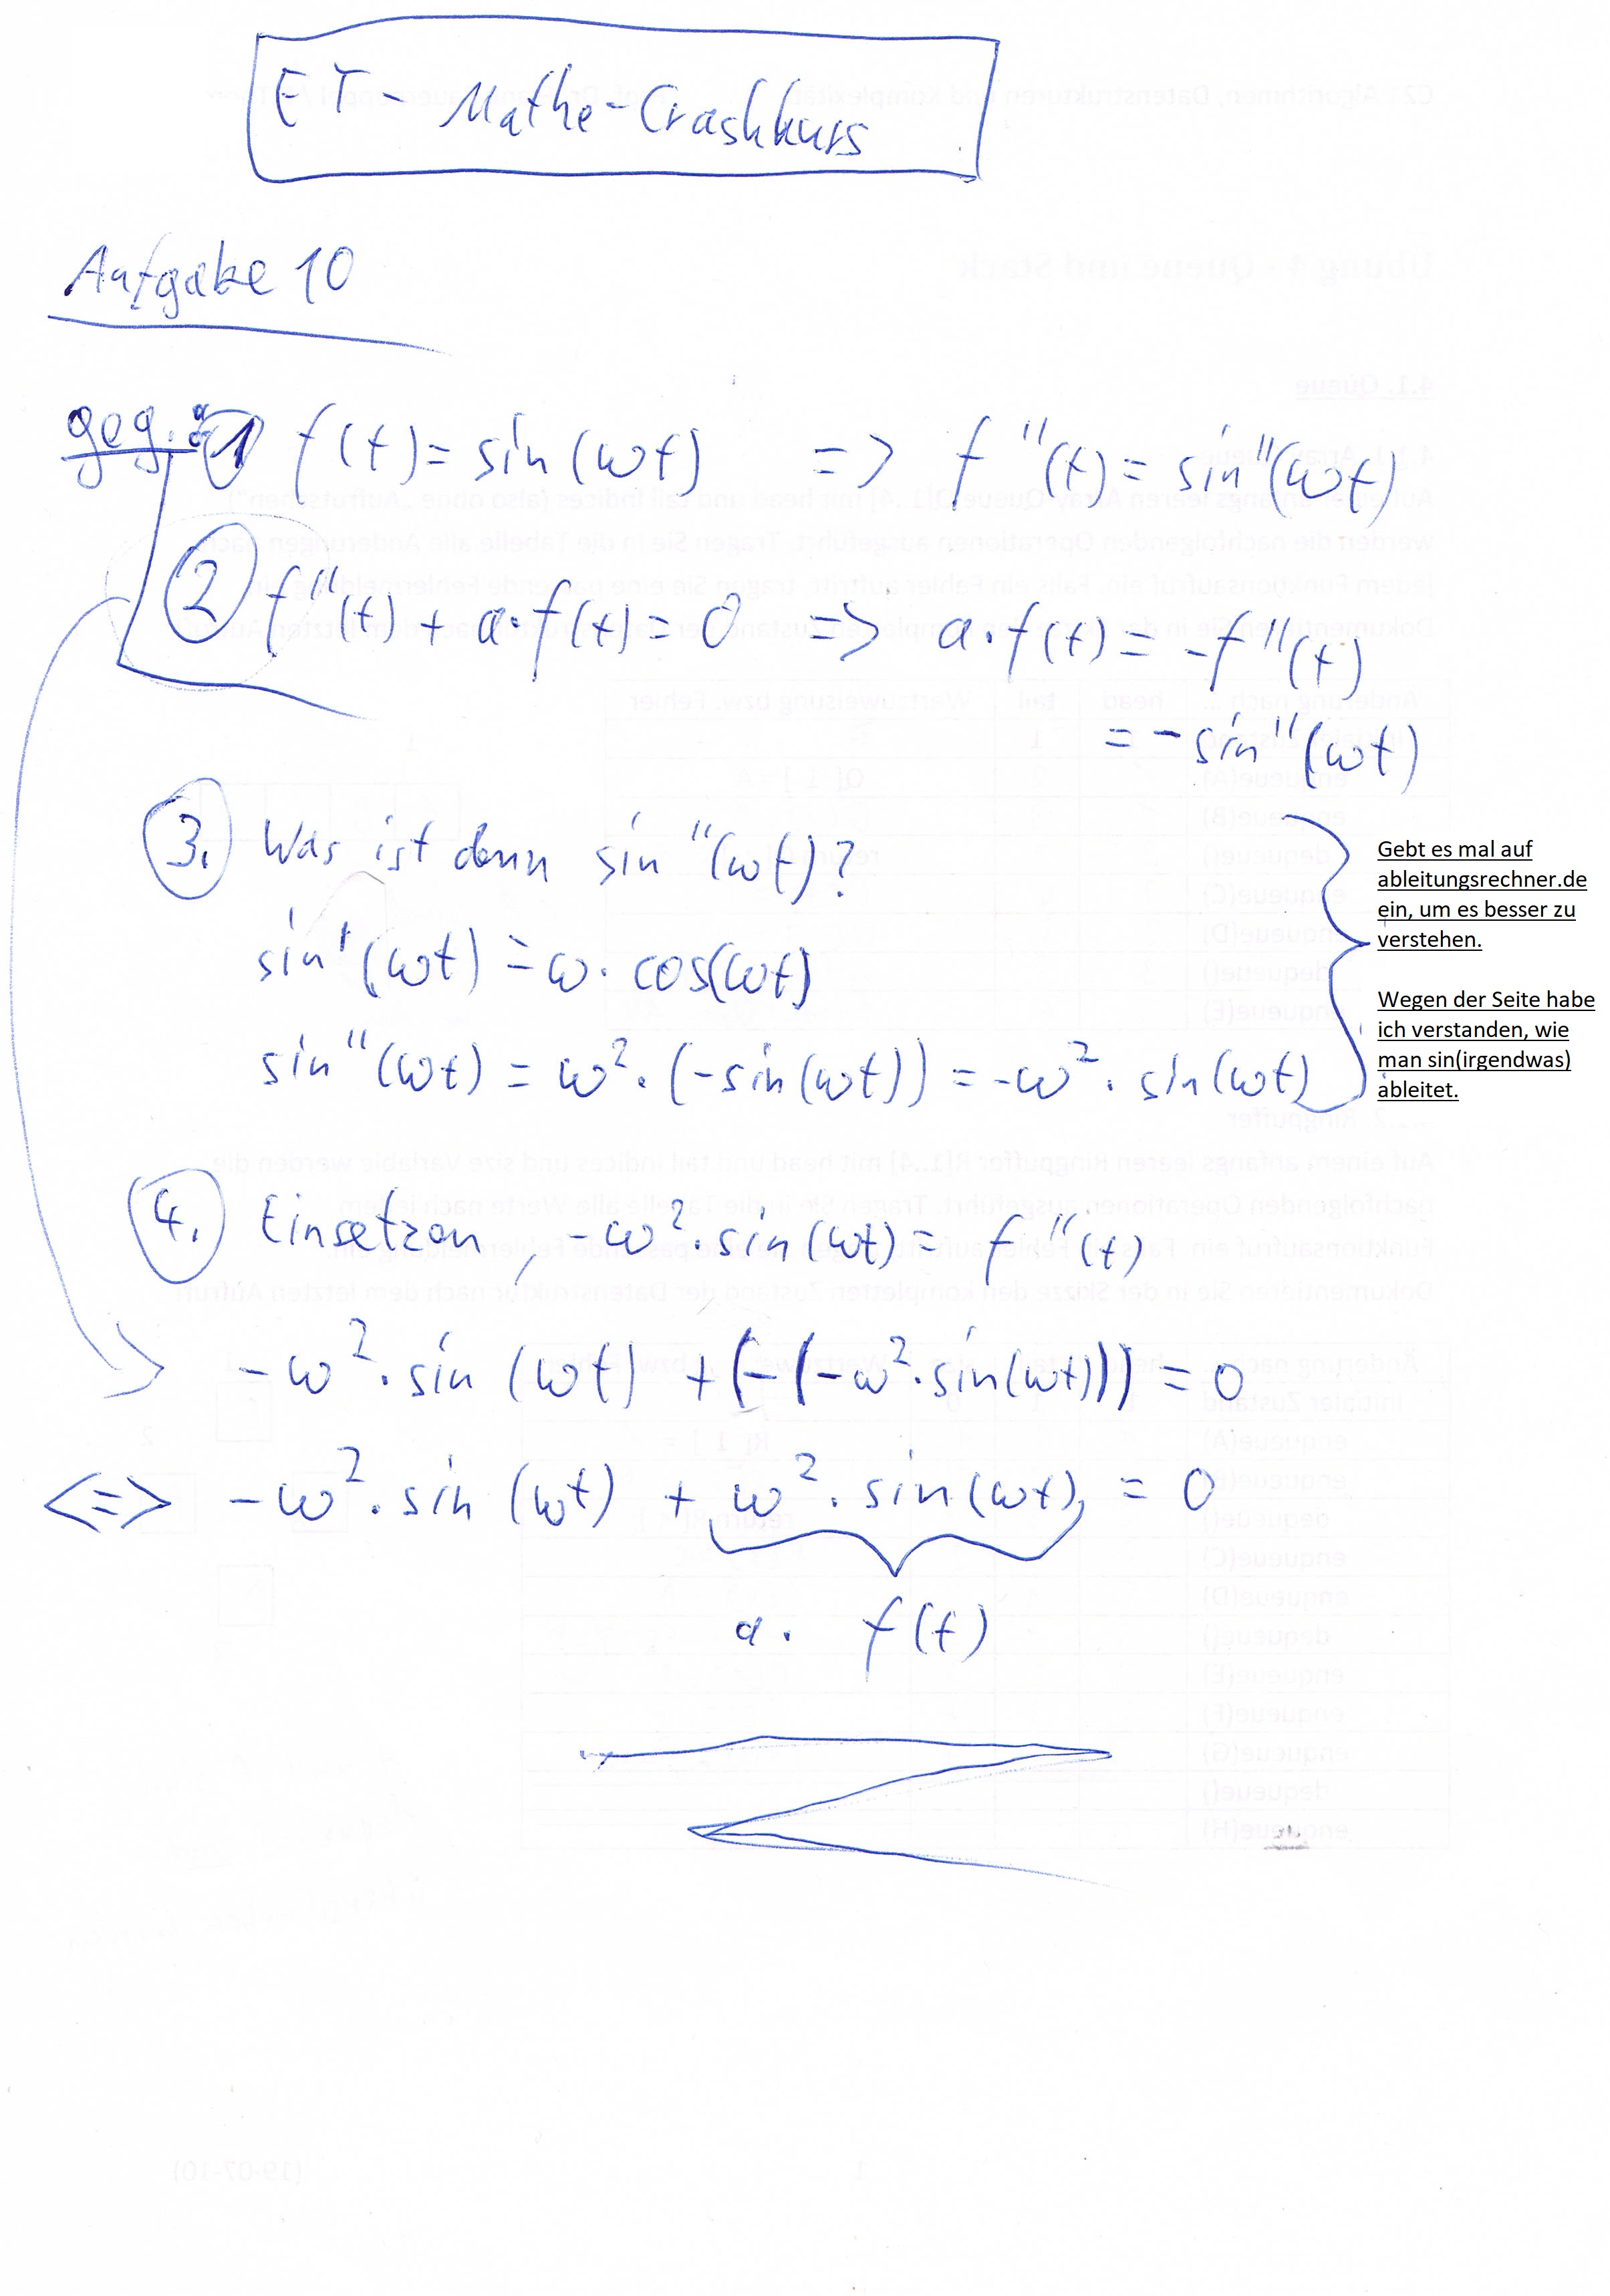 ET - Mathe-Crashkurs
Aufgabe 10
geg.: 1 f(t) = sin(ωt) => f''(t) = sin''(ωt)
2 f''(t) + a·f(t) = 0 => a·f(t) = -f''(t)
= -sin''(ωt)
3. Was ist denn sin''(ωt)?
sin'(ωt) = ω·cos(ωt)
sin''(ωt) = ω²·(-sin(ωt)) = -ω²·sin(ωt)
Gebt es mal auf
ableitungsrechner.de
ein, um es besser zu
verstehen.
Wegen der Seite habe
ich verstanden, wie
man sin(irgendwas)
ableitet.
4. Einsetzen, -ω²·sin(ωt) = f''(t)
-ω²·sin(ωt) + (-(-ω²·sin(ωt))) = 0
<=> -ω²·sin(ωt) + ω²·sin(ωt) = 0
a· f(t)